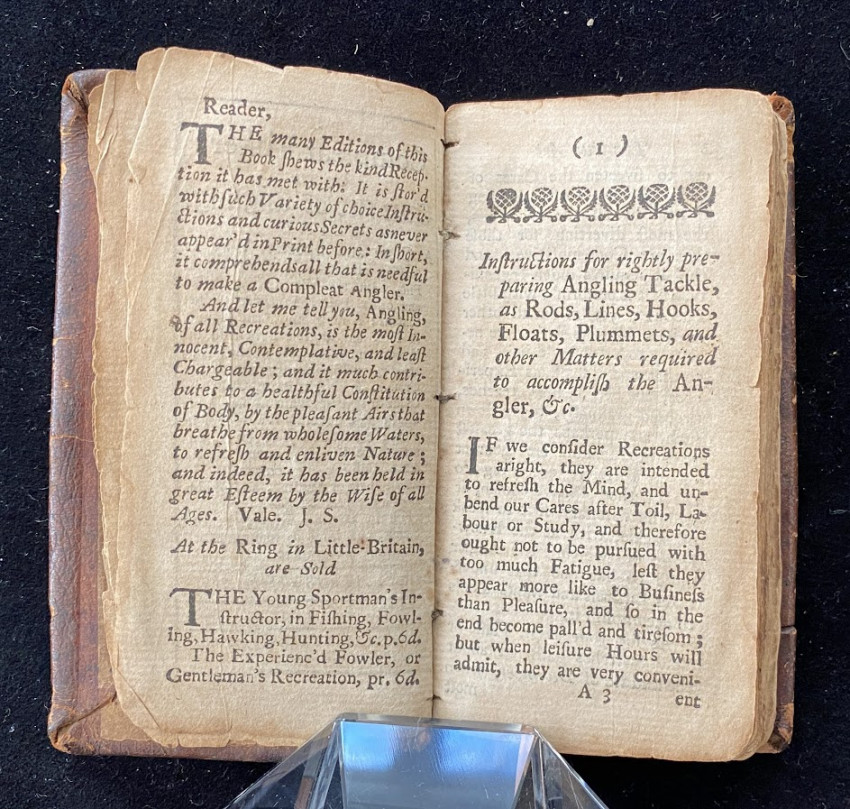 Reader,
THE many Editions of this
Book ſhews the kind Recep-
tion it has met with: It is ſtor'd
with ſuch Variety of choice Inſtru-
ctions and curious Secrets as never
appear'd in Print before: In ſhort,
it comprehends all that is needful
to make a Compleat Angler.
And let me tell you, Angling,
of all Recreations, is the moſt In-
nocent, Contemplative, and leaſt
Chargeable; and it much contri-
butes to a healthful Conſtitution
of Body, by the pleaſant Airs that
breathe from wholeſome Waters,
to refreſh and enliven Nature;
and indeed, it has been held in
great Eſteem by the Wiſe of all
Ages. Vale. J. S.
At the Ring in Little-Britain,
are Sold
THE Young Sportman's In-
ſtructor, in Fiſhing, Fowl-
ing, Hawking, Hunting, &c. p. 6d.
The Experienc'd Fowler, or
Gentleman's Recreation, pr. 6d.
(1)
Inſtructions for rightly pre-
paring Angling Tackle,
as Rods, Lines, Hooks,
Floats, Plummets, and
other Matters required
to accompliſh the An-
gler, &c.
IF we conſider Recreations
aright, they are intended
to refreſh the Mind, and un-
bend our Cares after Toil, La-
bour or Study, and therefore
ought not to be purſued with
too much Fatigue, leſt they
appear more like to Buſineſs
than Pleaſure, and ſo in the
end become pall'd and tireſom;
but when leiſure Hours will
admit, they are very conveni-
A 3 ent